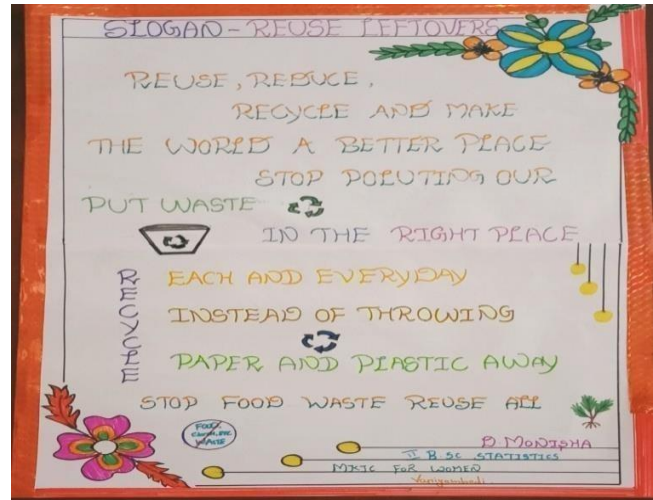 SLOGAN - REUSE LEFTOVERS
REUSE, REDUCE,
RECYCLE AND MAKE
THE WORLD A BETTER PLACE
STOP POLUTING OUR
PUT WASTE
IN THE RIGHT PLACE
RECYCLE
EACH AND EVERYDAY
INSTEAD OF THROWING
PAPER AND PLASTIC AWAY
STOP FOOD WASTE REUSE ALL
FOOD
WASTE
D. MONISHA
II B.SC STATISTICS
MKJC FOR WOMEN
Vaniyambadi